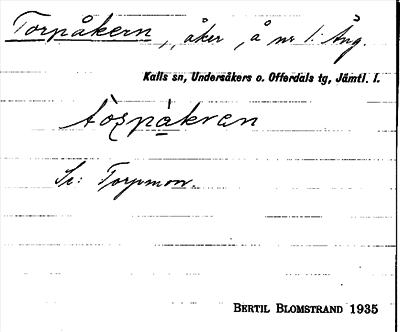 Torpåkern, åker, å nr 1. Äng.
Kalls sn, Undersåkers o. Offerdals tg, Jämtl. l.
tòṣpàkran
Se: Torpmon.
BERTIL BLOMSTRAND 1935